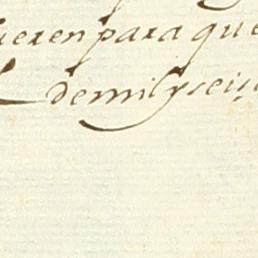 ieren para que
de mil y seis